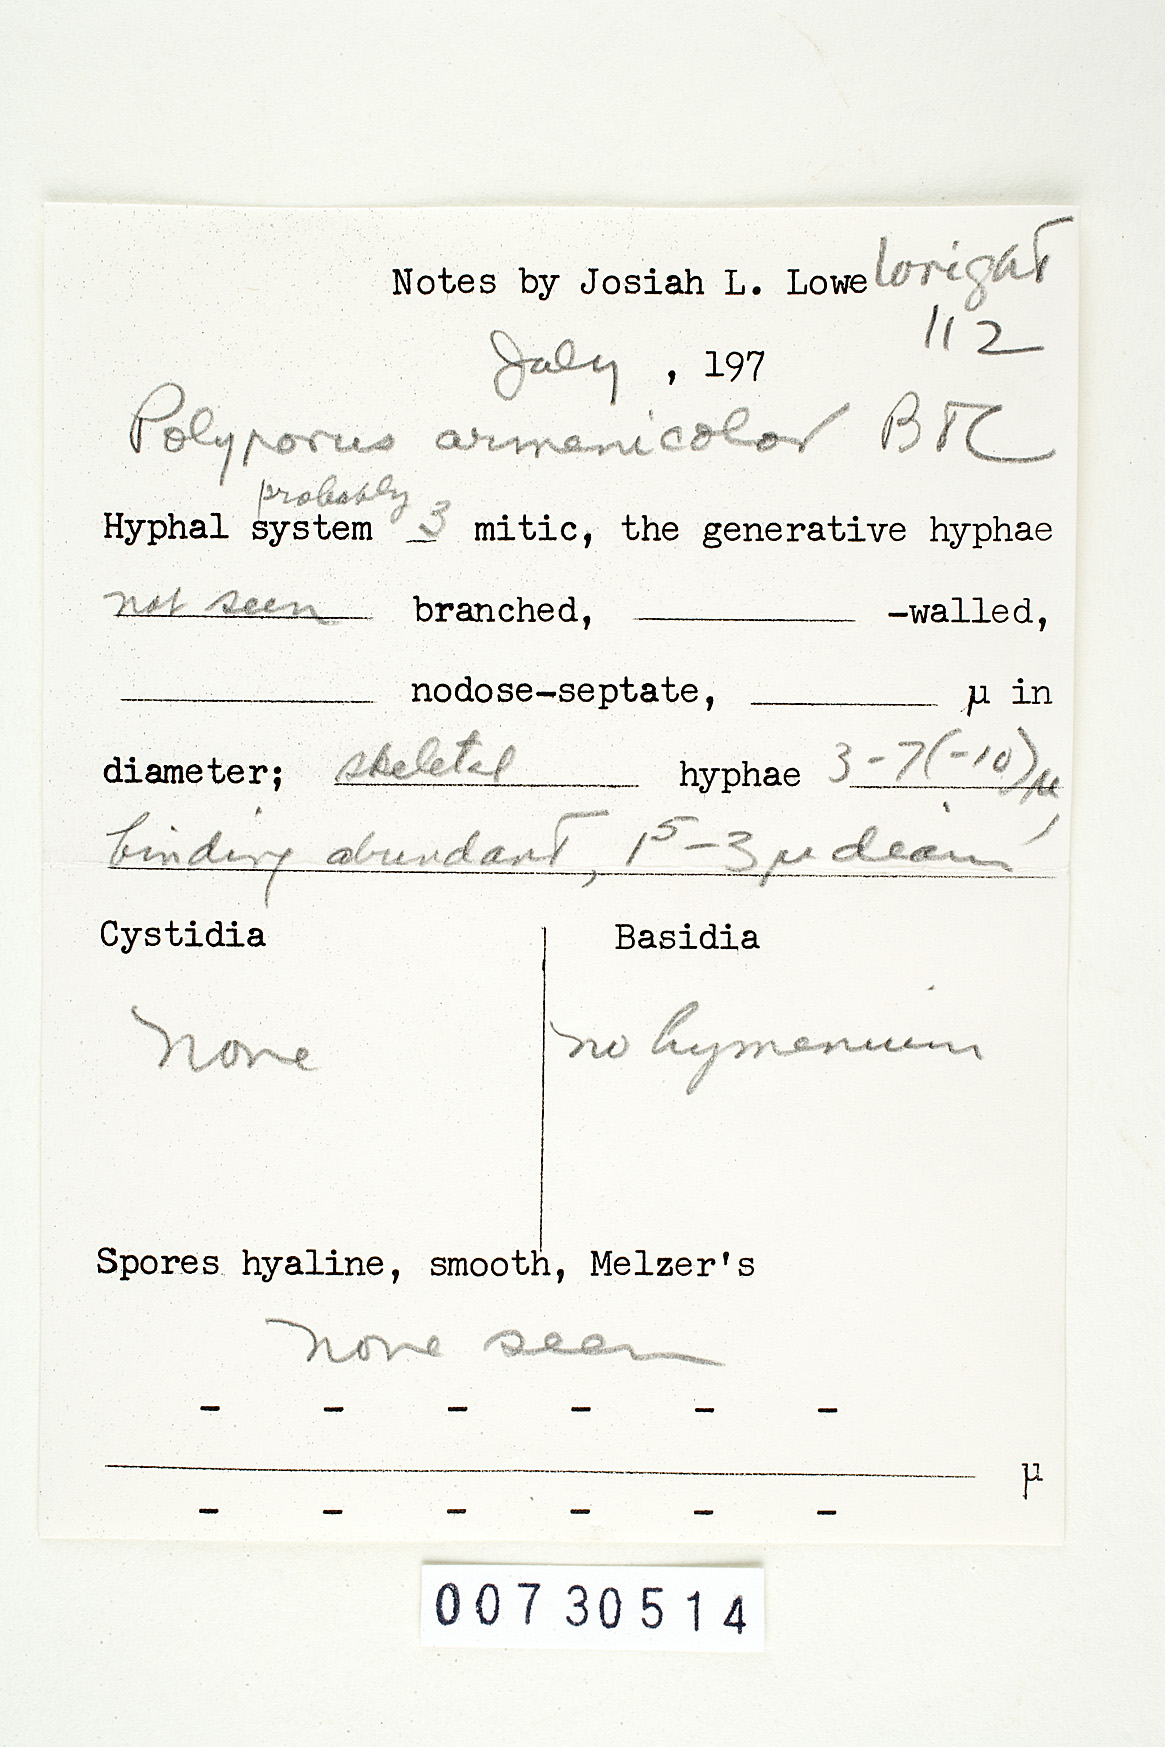 Notes by Josiah L. Lowe Wright
112
July , 197
Polyporus armenicolor B&C
probably
Hyphal system 3 mitic, the generative hyphae
not seen branched, -walled,
nodose-septate, µ in
diameter; skeletal hyphae 3-7(-10)µ,
binding abundant, 1⁵-3µ diam
Cystidia Basidia
None no hymenium
Spores hyaline, smooth, Melzer's
None seen
- - - - - -
µ
- - - - - -
00730514